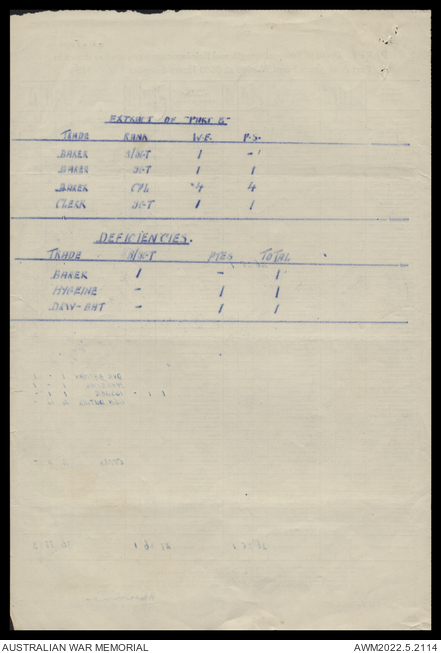 EXTRACT OF "PART B"
TRADE RANK W.E. P.S.
BAKER S/SGT 1 -
BAKER SGT 1 1
BAKER CPL 4 4
CLERK SGT 1 1
DEFICIENCIES.
TRADE S/SGT PTES TOTAL
BAKER 1 - 1
HYGEINE - 1 1
DRV-BAT - 1 1
AUSTRALIAN WAR MEMORIAL AWM2022.5.2114